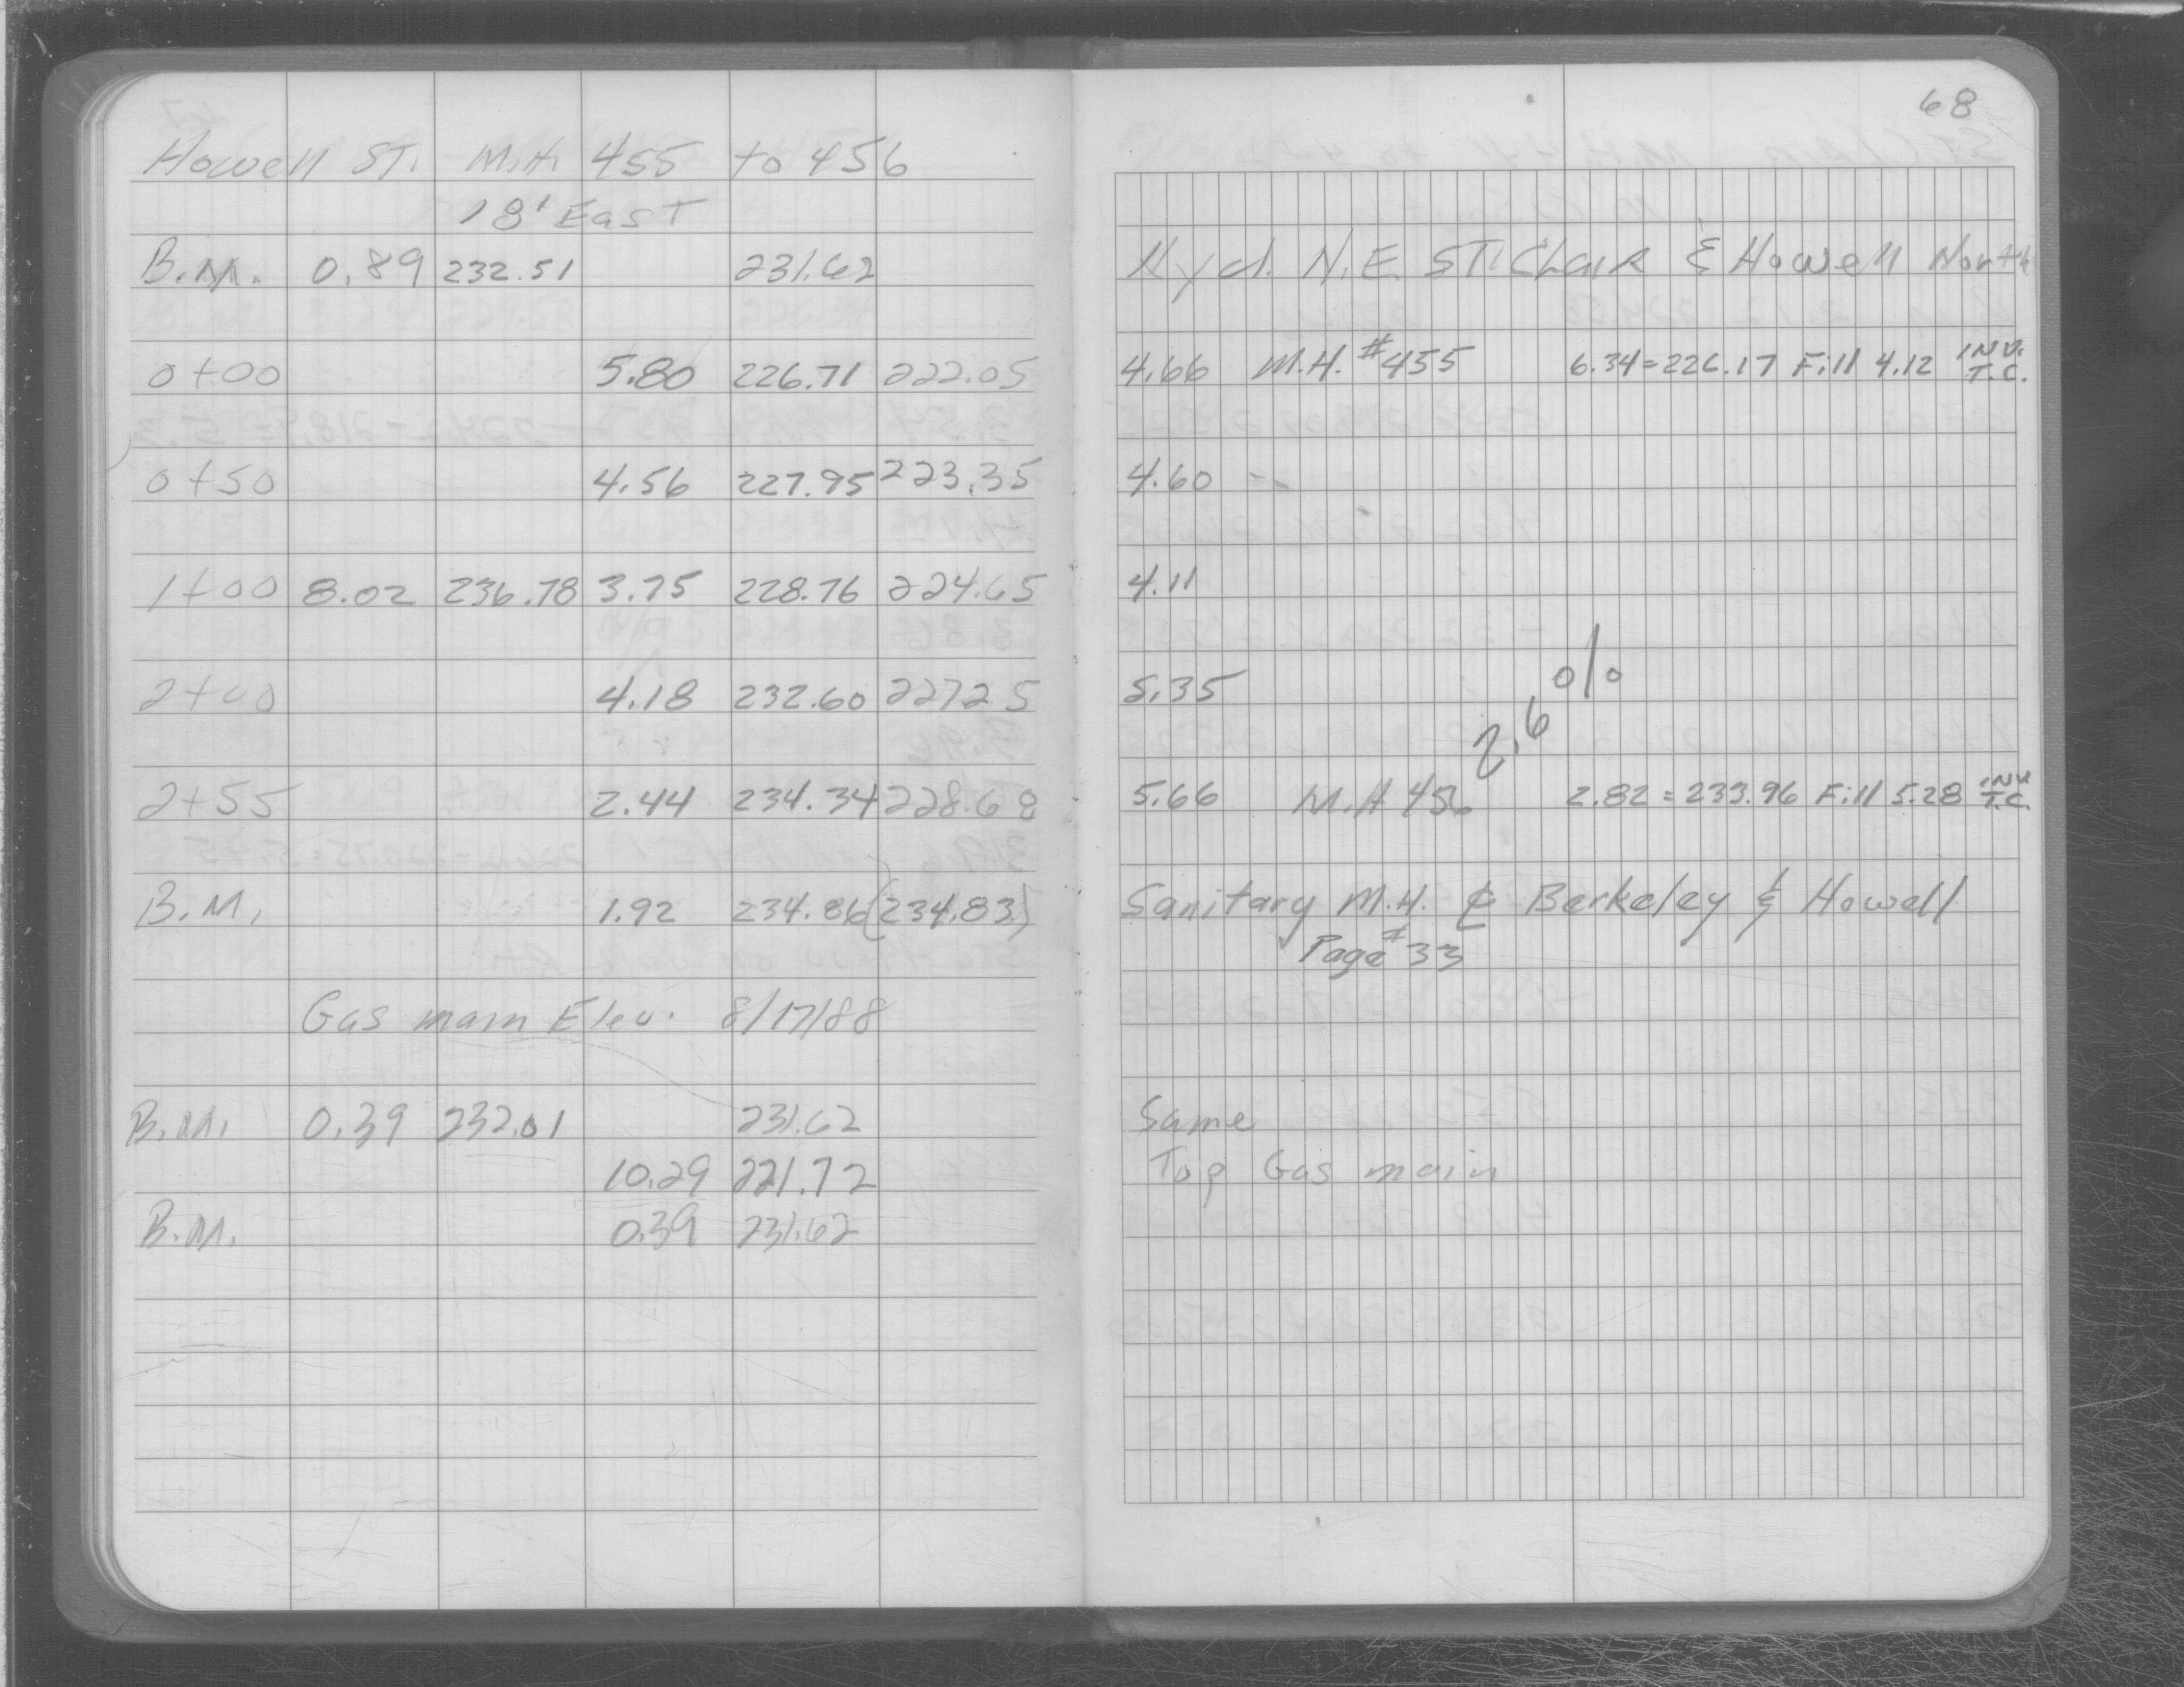 68
Howell ST. M.H. 455 to 456
18' East
B.M. 0.89 232.51 231.62 Hyd. N.E. ST.Clair & Howell North
0+00 5.80 226.71 222.05 4.66 M.H. #455 6.34=226.17 Fill 4.12 INV. T.C.
0+50 4.56 227.95 223.35 4.60
1+00 8.02 236.78 3.75 228.76 224.65 4.11
2+00 4.18 232.60 227.25 5.35
2.6 %
2+55 2.44 234.34 228.68 5.66 M.H 456 2.82=233.96 Fill 5.28 INV. T.C.
B.M. 1.92 234.86 (234.83) Sanitary M.H. ₵ Berkeley & Howell
Page #33
Gas main Elev. 8/17/88
B.M. 0.39 232.01 231.62 Same
10.29 221.72 Top Gas main
B.M. 0.39 231.62